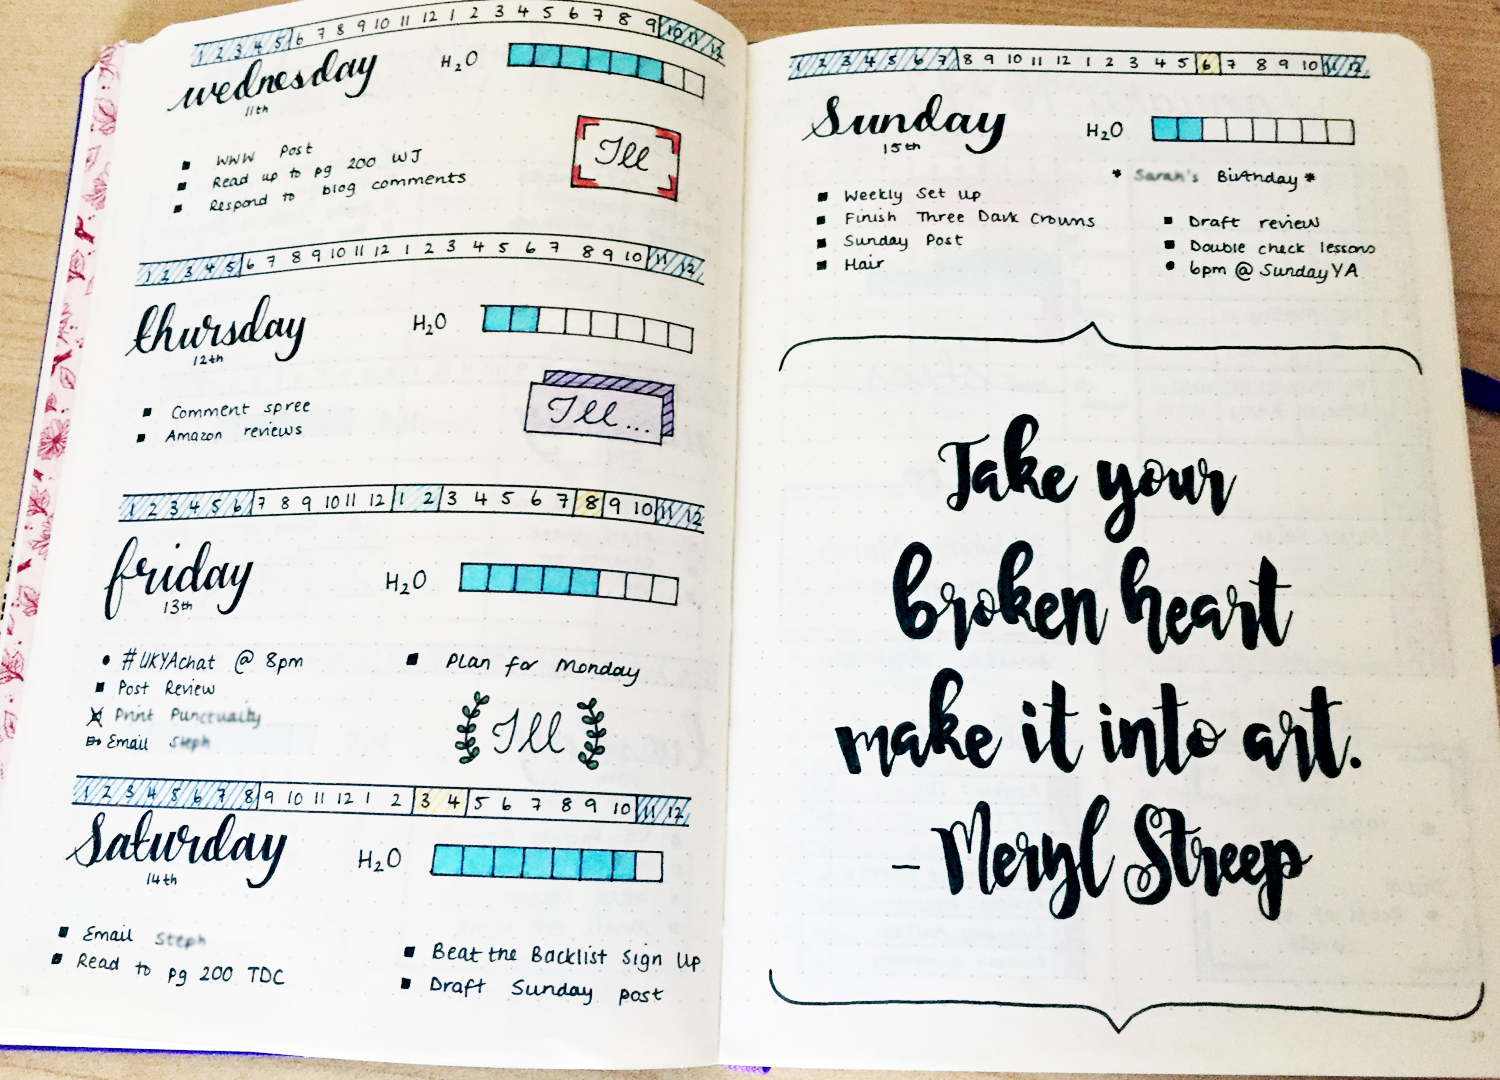 1 2 3 4 5 6 7 8 9 10 11 12 1 2 3 4 5 6 7 8 9 10 11 12
wednesday
11th
H₂O
WWW Post
Read up to pg 200 WJ
Respond to blog comments
Ill
1 2 3 4 5 6 7 8 9 10 11 12 1 2 3 4 5 6 7 8 9 10 11 12
thursday
12th
H₂O
Comment spree
Amazon reviews
Ill...
1 2 3 4 5 6 7 8 9 10 11 12 1 2 3 4 5 6 7 8 9 10 11 12
friday
13th
H₂O
#UKYAchat @ 8pm
Post Review
Print Punctuality
Email Steph
Plan for Monday
Ill
1 2 3 4 5 6 7 8 9 10 11 12 1 2 3 4 5 6 7 8 9 10 11 12
Saturday
14th
H₂O
Email Steph
Read to pg 200 TDC
Beat the Backlist Sign Up
Draft Sunday post
1 2 3 4 5 6 7 8 9 10 11 12 1 2 3 4 5 6 7 8 9 10 11 12
Sunday
15th
H₂O
* Sarah's Birthday *
Weekly Set Up
Finish Three Dark Crowns
Sunday Post
Hair
Draft review
Double check lessons
6pm @ SundayYA
Take your
broken heart
make it into art.
- Meryl Streep
39